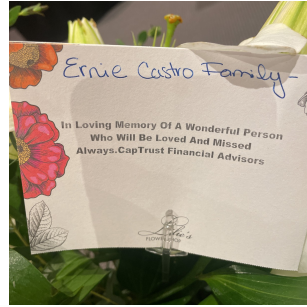 Ernie Castro Family -
In Loving Memory Of A Wonderful Person
Who Will Be Loved And Missed
Always.CapTrust Financial Advisors